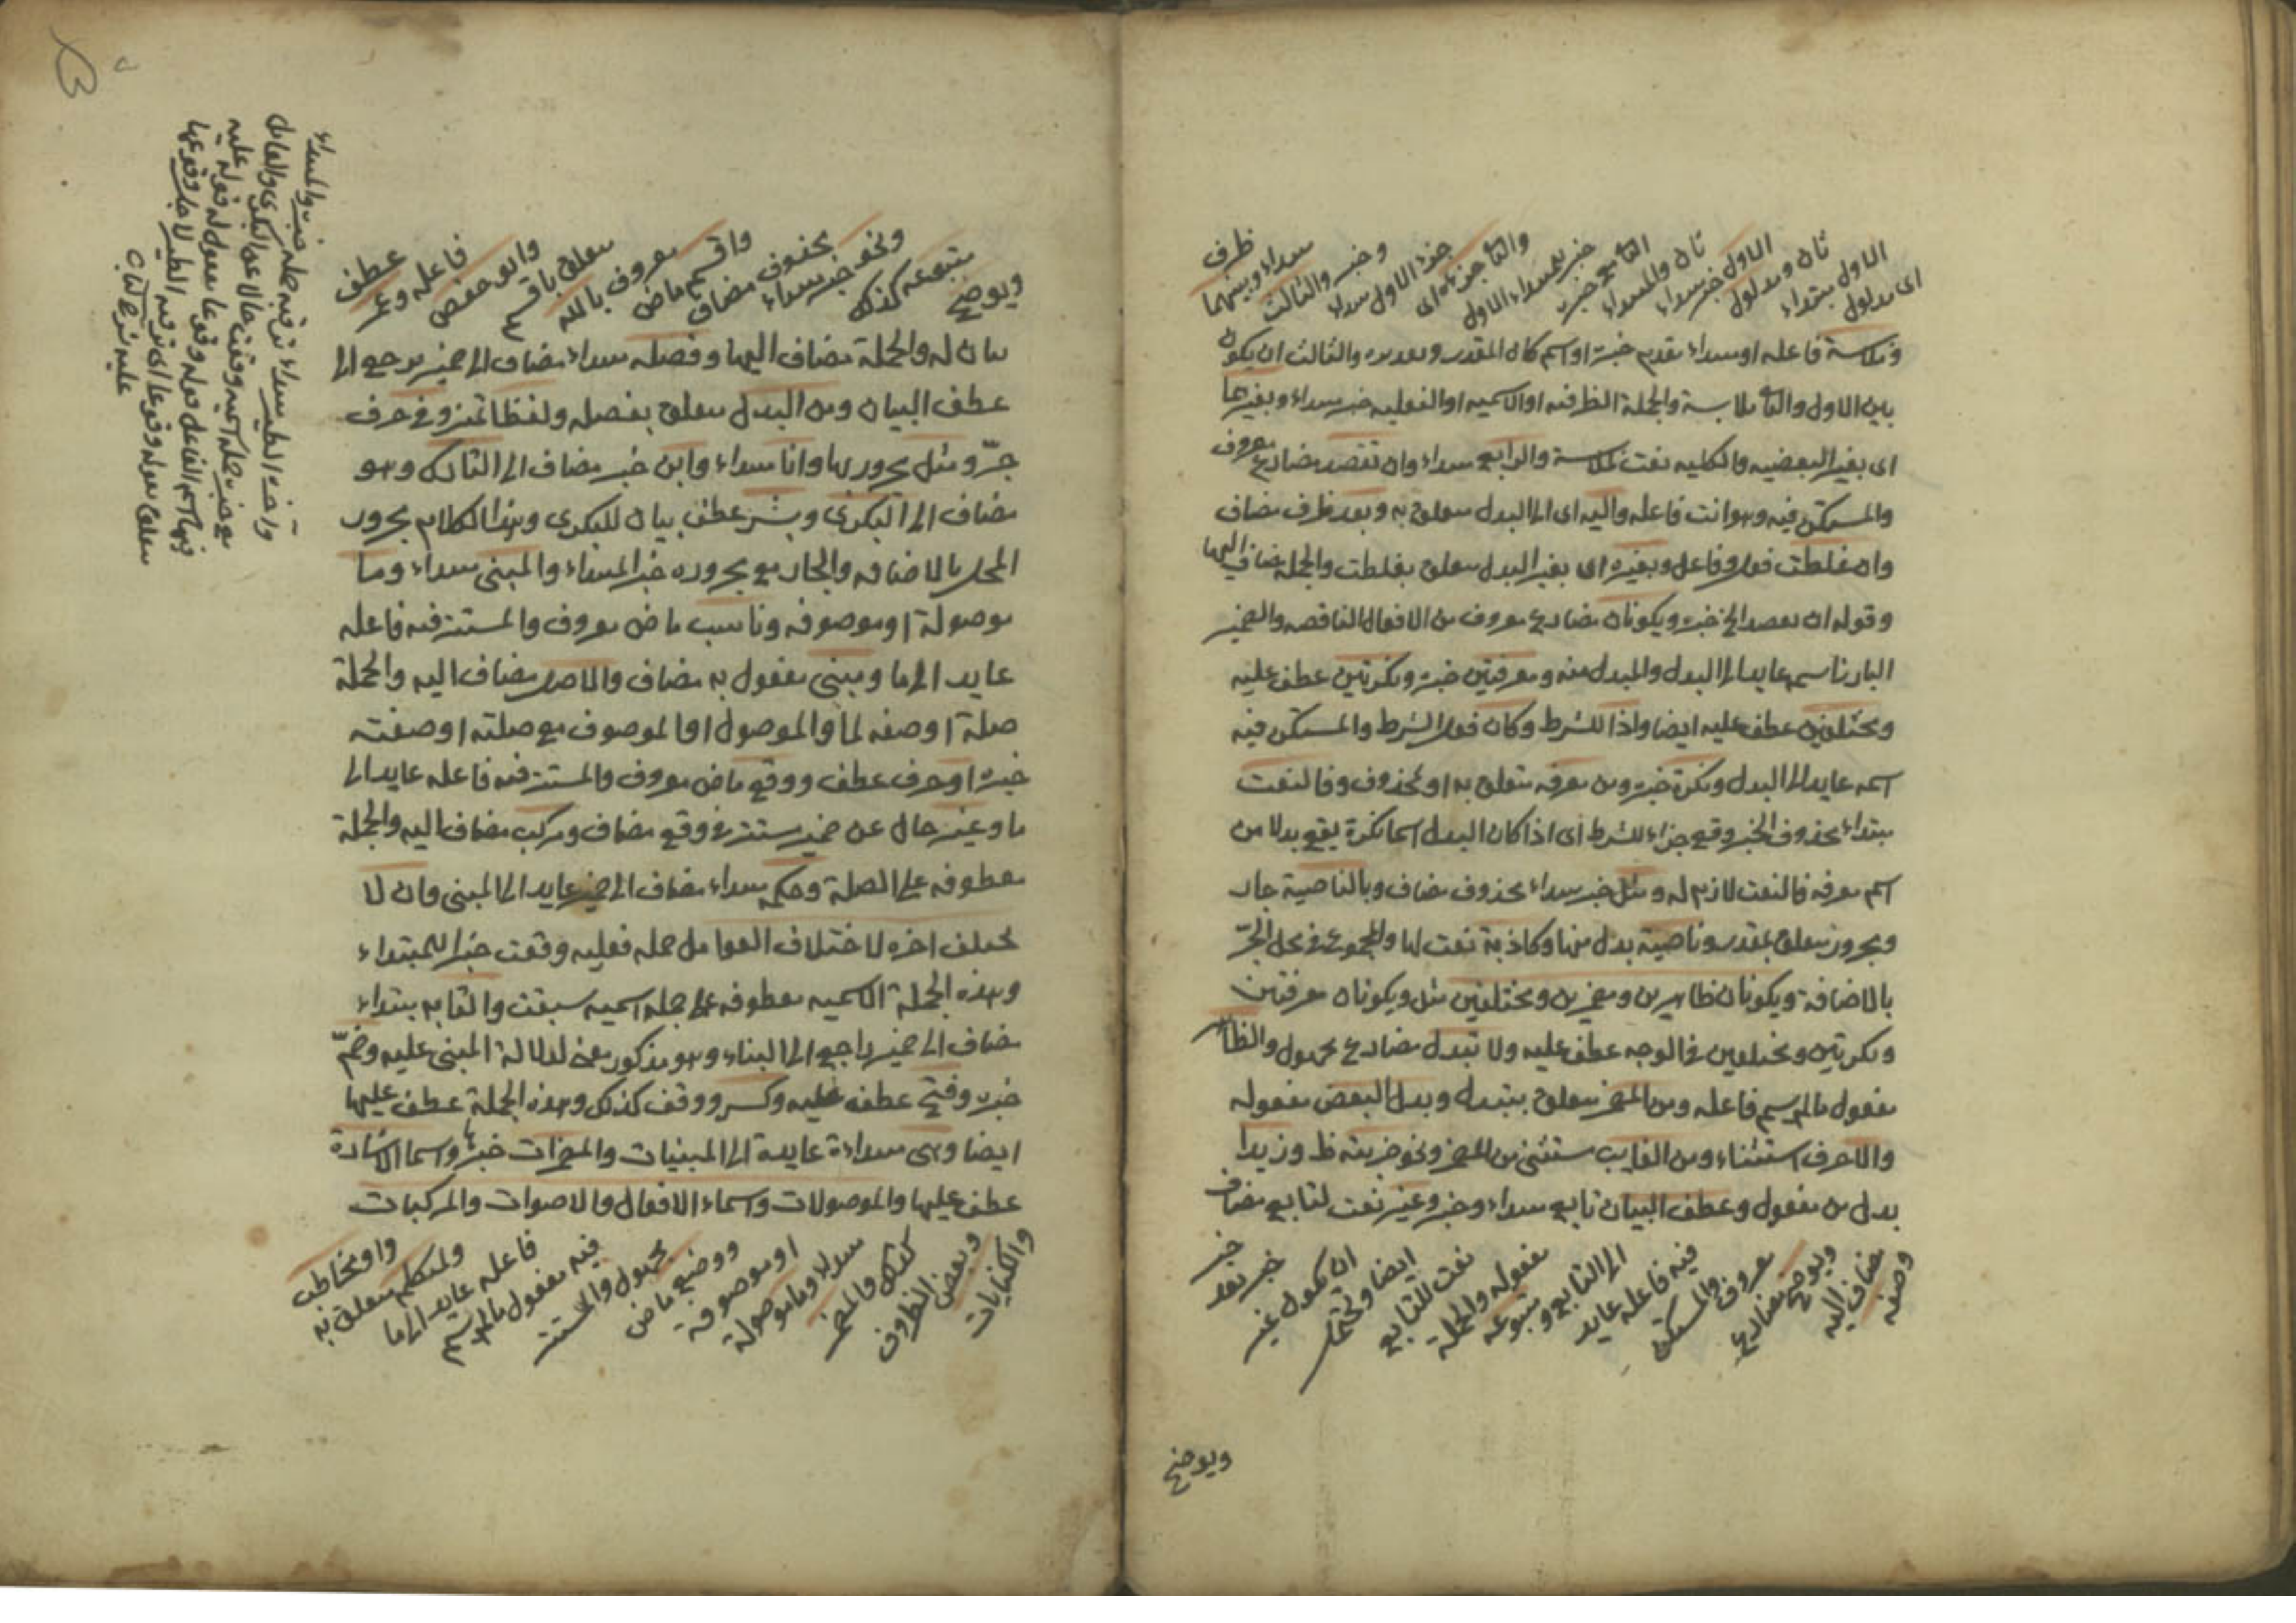 اى مدلول
الاول مبتداء
ثان ومدلول
الاول خبر مبتداء
ثان والمبتداء
الثانى مع خبره
خبر لمبتداء الاول
والثانى جزءه اى
جزء الاول مبتداء
وخبر والثالث
مبتداء وبينهما
ظرف
وملابسة فاعله او مبتداء تقدم خبره او اسم كان المقدر وبعده والثالث ان يكون
بين الاول والثانى ملابسة والجملة الظرفيه او الاسميه او الفعليه خبر مبتداء وبغيرهما
اى بغير البعضيه والكليه نعت ملابسة والرابع مبتداء وان تقصد مضارع معروف
والمستكن فيه وهو انت فاعله واليه اى الى البدل متعلق به وبعد ظرف مضاف
وان غلطت فعل وفاعل وبغيره اى بغير البدل متعلق بغلطت والجملة مضاف اليها
وقوله ان تقصد الخ خبره ويكونان مضارع معروف من الافعال الناقصه والضمير
البارز اسمه عايد الى البدل والمبدل منه ومعرفتين خبره ونكرتين عطف عليه
ومختلفين عطف عليه ايضا واذا للشرط وكان فعل الشرط والمستكن فيه
اسمه عايد الى البدل ونكرة خبره ومن معرفه متعلق به او محذوف وفالنعت
مبتداء محذوف الخبر وقع جزاء للشرط اى اذا كان البدل اسما نكرة يقع بدلا من
اسم معرفه فالنعت لازم له ومثل خبر مبتداء محذوف مضاف وبالناصية جار
ومجرور متعلق بمقدر وناصية بدل منها وكاذبة نعت لها والمجموع فى محل الجرّ
بالاضافة ويكونان ظاهرين ومضمرين ومختلفين مثل ويكونان معرفتين
ونكرتين ومختلفين فى الوجه عطف عليه ولا تبدل مضارع مجهول والظاهر
مفعول مالم يسم فاعله ومن المضمر متعلق بتبدل وبدل البعض مفعوله
والا حرف استثناء ومن الغايب مستثنى من المضمر ونحو ضربته ظ وزيدا
بدل من مفعول وعطف البيان تابع مبتداء وخبر وغير نعت لتابع مضاف
وصفه
مضاف اليه
ويوضح مضارع
معروف والمستكن
فيه فاعله عايد
الى التابع ومتبوعه
مفعوله والجملة
نعت للتابع
ايضا ويحتمل
ان يكون غير
خبر بعد
خبر
ويوضح
ويوضح
متبوعه كذلك
ونحو خبر مبتداء
محذوف مضاف
واقسم ماض
معروف بالله
متعلق باقسم
وابو حفص
فاعله وعمر
عطف
بيان له والجملة مضاف اليها وفصله مبتداء مضاف الى ضمير يرجع الى
عطف البيان ومن البدل متعلق بفصله ولفظا تميز وفى حرف
جرّ ومثل مجرور بها وانا مبتداء وابن خبر مضاف الى التارك وهو
مضاف الى البكرى وبشر عطف بيان للبكرى وهذا الكلام مجرور
المحل بالاضافه والجار مع مجروره خبر المبتداء والمبنى مبتداء وما
موصولة او موصوفه وناسب ماض معروف والمستتر فيه فاعله
عايد الى ما ومبنى مفعول به مضاف والاصل مضاف اليه والجملة
صلة او صفه لما والموصول او الموصوف مع صلته او صفته
خبره او حرف عطف ووقع ماض معروف والمستتر فيه فاعله عايد الى
ما وغير حال عن ضمير مستتر فى وقع مضاف ومركب مضاف اليه والجملة
معطوفه على الصلة وحكمه مبتداء مضاف الى ضمير عايد الى المبنى وان لا
يختلف اخره لاختلاف العوامل جمله فعليه وقعت خبرا للمبتداء
وهذه الجملة الاسميه معطوفه على جمله اسميه سبقت والقابه مبتداء
مضاف الى ضمير راجع الى البناء وهو مذكور معنى لدلالة المبنى عليه وضمّ
خبره وفتح عطف عليه وكسر ووقف كذلك وهذه الجملة عطف عليها
ايضا وهى مبتداءة عايدة الى المبنيات والمضمرات خبرها واسماء الاشارة
عطف عليها والموصولات واسماء الافعال والاصوات والمركبات
والكنايات
وبعض الظروف
كذلك والمضمر
مبتداء وما موصولة
او موصوفة
ووضع ماض
مجهول والمستتر
فيه مفعول مالم يسم
فاعله عايد الى ما
ولمتكلم متعلق به
او مخاطب